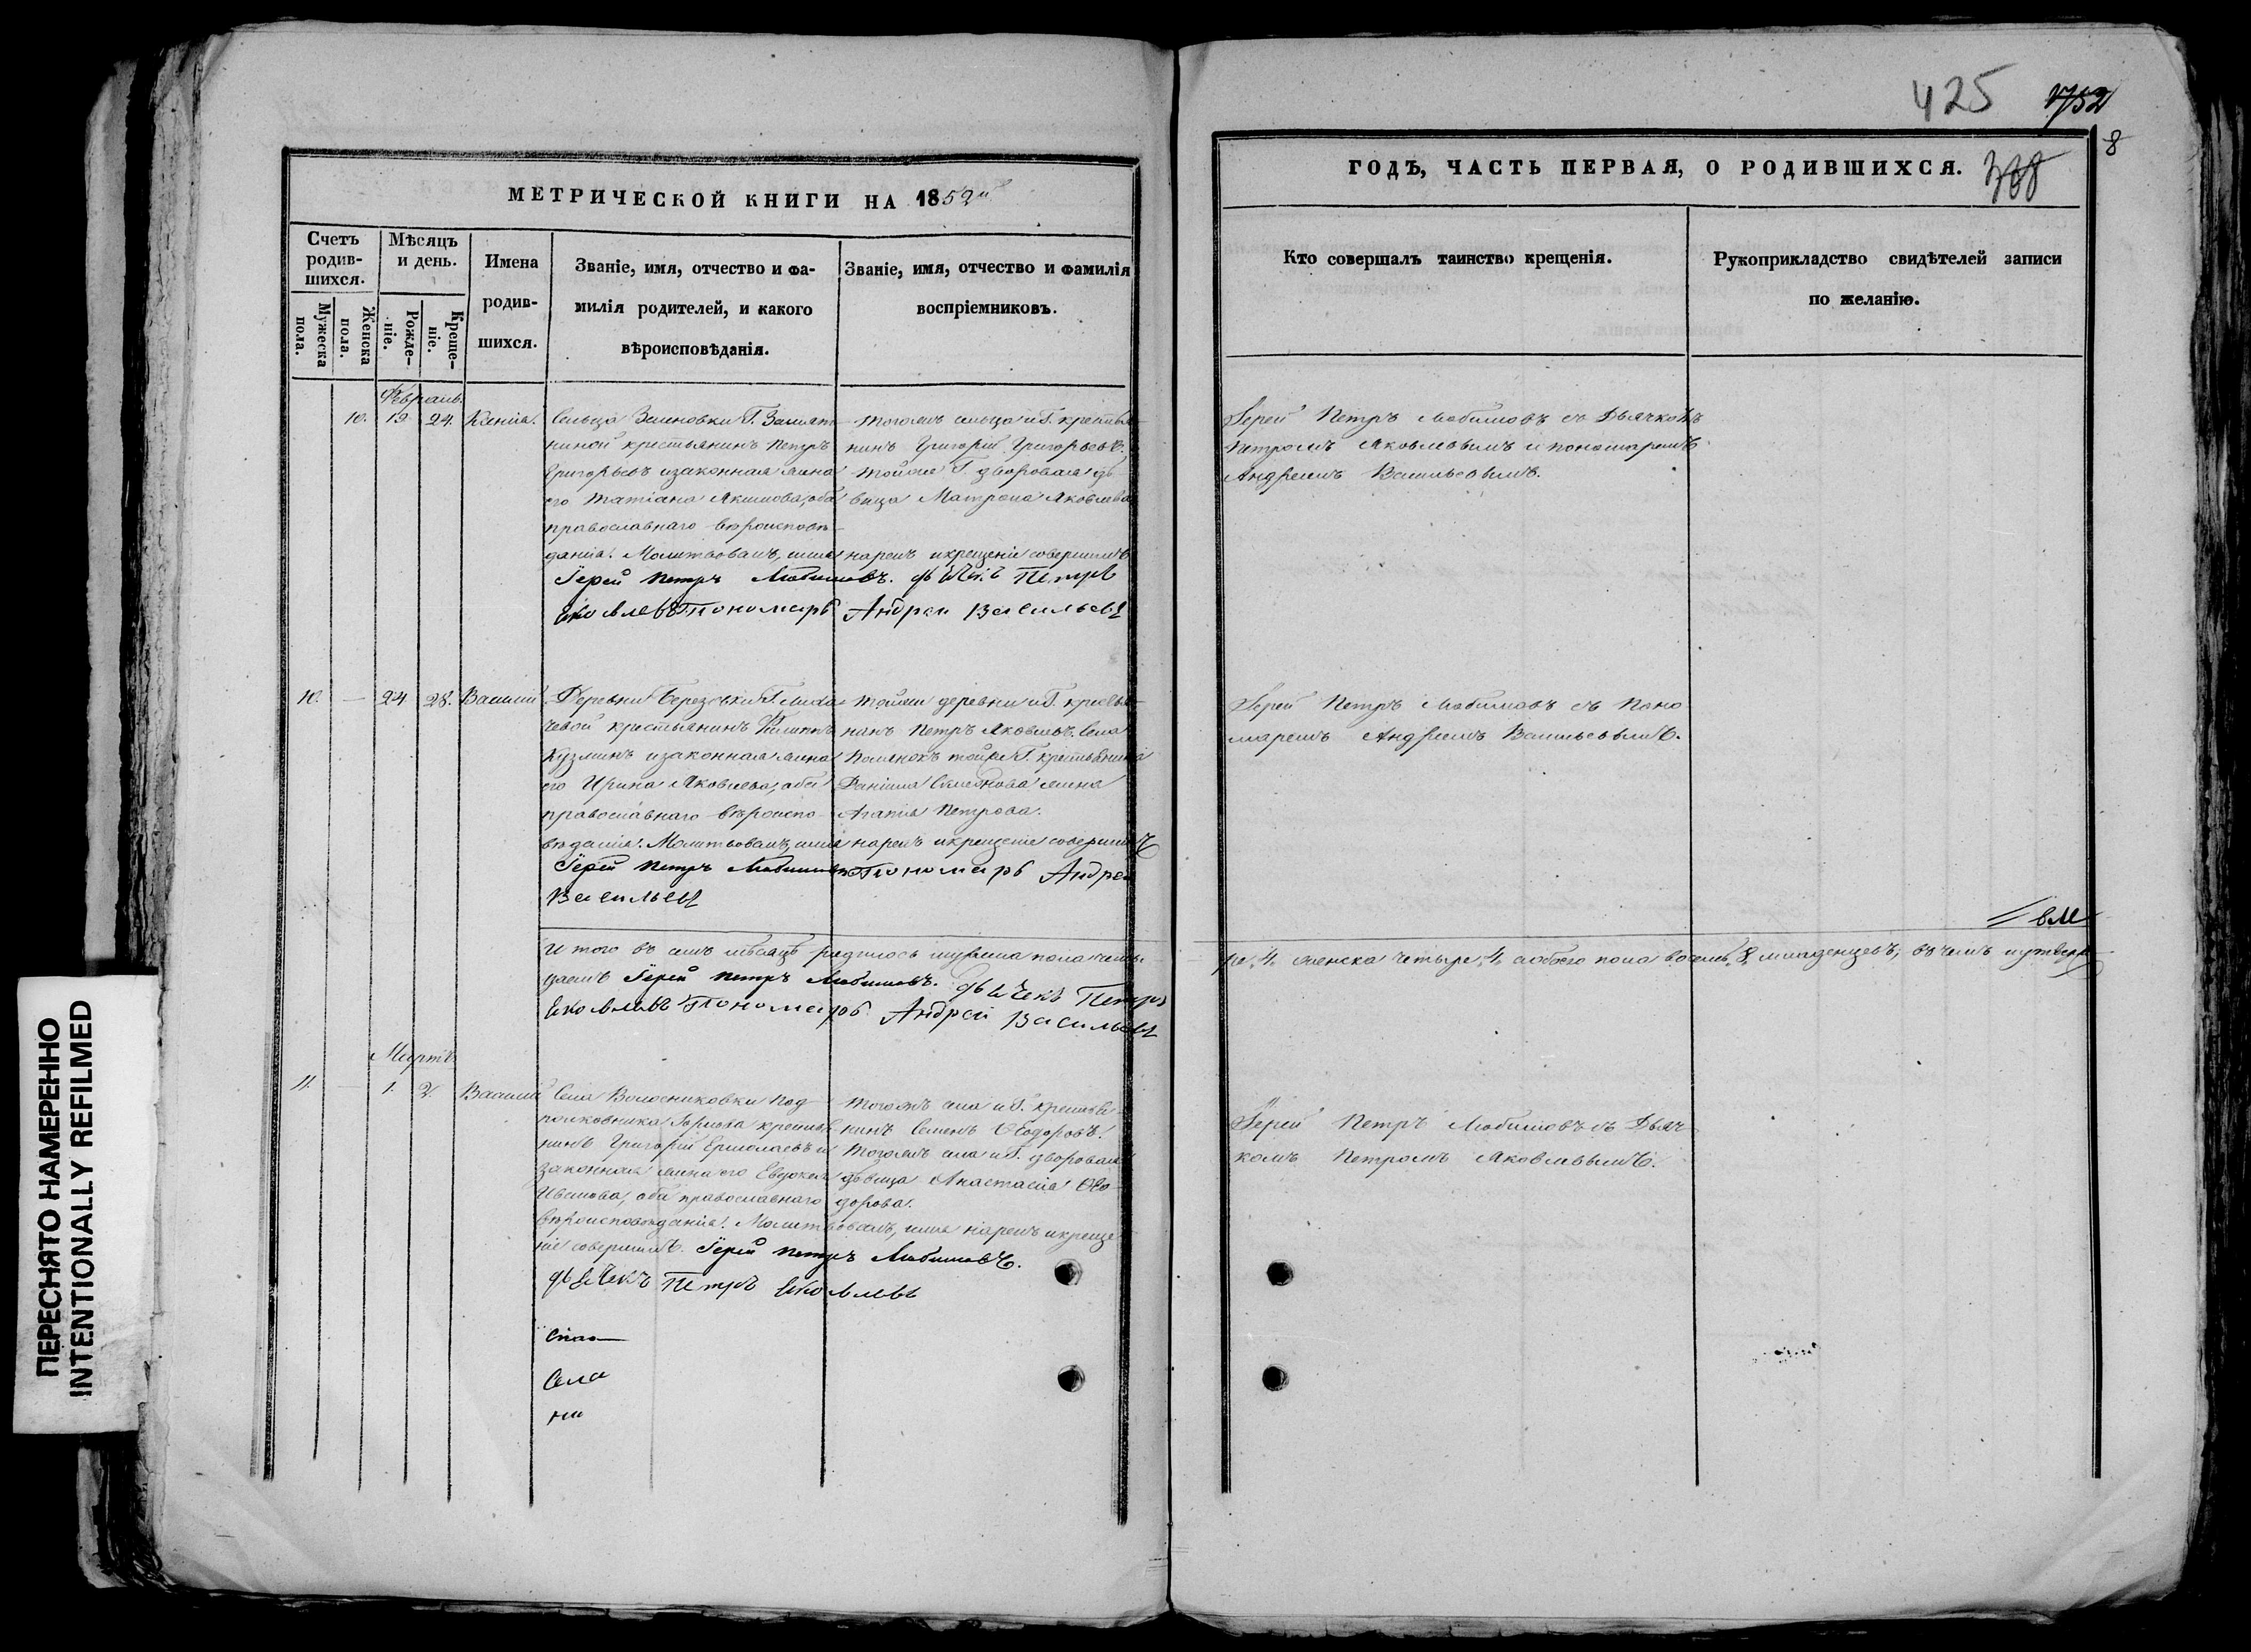 425 1752
8
МЕТРИЧЕСКОЙ КНИГИ НА 1852й
ГОДЪ, ЧАСТЬ ПЕРВАЯ, О РОДИВШИХСЯ.
Счетъ родив-шихся.
Мужеска пола.
Женска пола.
Мѣсяцъ и день.
Рожде-ніе.
Креще-ніе.
Имена
родив-
шихся.
Званіе, имя, отчество и фа-
милія родителей, и какого
вѣроисповѣданія.
Званіе, имя, отчество и фамилія
воспріемниковъ.
Кто совершалъ таинство крещенія.
Рукоприкладство свидѣтелей записи
по желанію.
Февраль.
10. 19. 24. Ксенія.
Сельца Зеленовки Г. Замят-
ниной крестьянинъ Петръ
Григорьевъ изаконная жена
его Татіана Акимова, оба
православнаго вѣроисповѣ-
данія. Молитвовалъ, имя нарекъ икрещеніе совершилъ
Іерей Петръ Любимовъ. дьячекъ Петръ
Яковлевъ Пономарь Андрей Васильевъ
Тогожъ сельца иГ. крестья-
нинъ Григорій Григорьевъ.
Тойже Г. дворовая дѣ-
вица Матрона Яковлева
Іерей Петръ Любимовъ съ Дьячкомъ
Петромъ Яковлевымъ и пономаремъ
Андреемъ Васильевымъ.
10. — 24 28. Василій
Деревни Березовки Г. Лиха-
чевой крестьянинъ Филиппъ
Кузминъ изаконная жена
его Ирина Яковлева, оба
православнаго вѣроиспо-
вѣданія. Молитвовалъ, имя нарекъ икрещеніе совершилъ
Іерей Петръ Любимовъ Пономарь Андрей
Васильевъ
Тойже деревни иГ. крестья-
нинъ Петръ Яковлевъ. Села
тойже Г. крестьянина
Даніила Симеонова жена
Агапія Петрова.
Іерей Петръ Любимовъ съ Поно
маремъ Андреемъ Васильевымъ.
Итого въ семъ мѣсяцѣ родилось мужеска пола четы-
ре, 4. женска четыре, 4. а обоего пола восемь, 8, младенцевъ; въ чемъ иутверж-
даемъ Іерей Петръ Любимовъ. Дьячекъ Петръ
Яковлевъ Пономарь Андрей Васильевъ
Мартъ.
11. — 1. 2. Василій
Села Волосниковки Под-
полковника крестья-
нинъ Григорій Ермолаевъ и
законная жена его Евдокія
Иванова, оба православнаго
вѣроисповѣданія. Молитвовалъ, имя нарекъ икреще-
ніе совершилъ. Іерей Петръ Любимовъ.
дьячекъ Петръ Яковлевъ
Тогожъ села иГ. крестья-
нинъ Семенъ Ѳеодоровъ.
Тогожъ села иГ. дворовая
дѣвица Анастасія Ѳео-
дорова.
Іерей Петръ Любимовъ съ Дьяч
комъ Петромъ Яковлевымъ.
Села
ни
ПЕРЕСНЯТО НАМЕРЕННО
INTENTIONALLY REFILMED